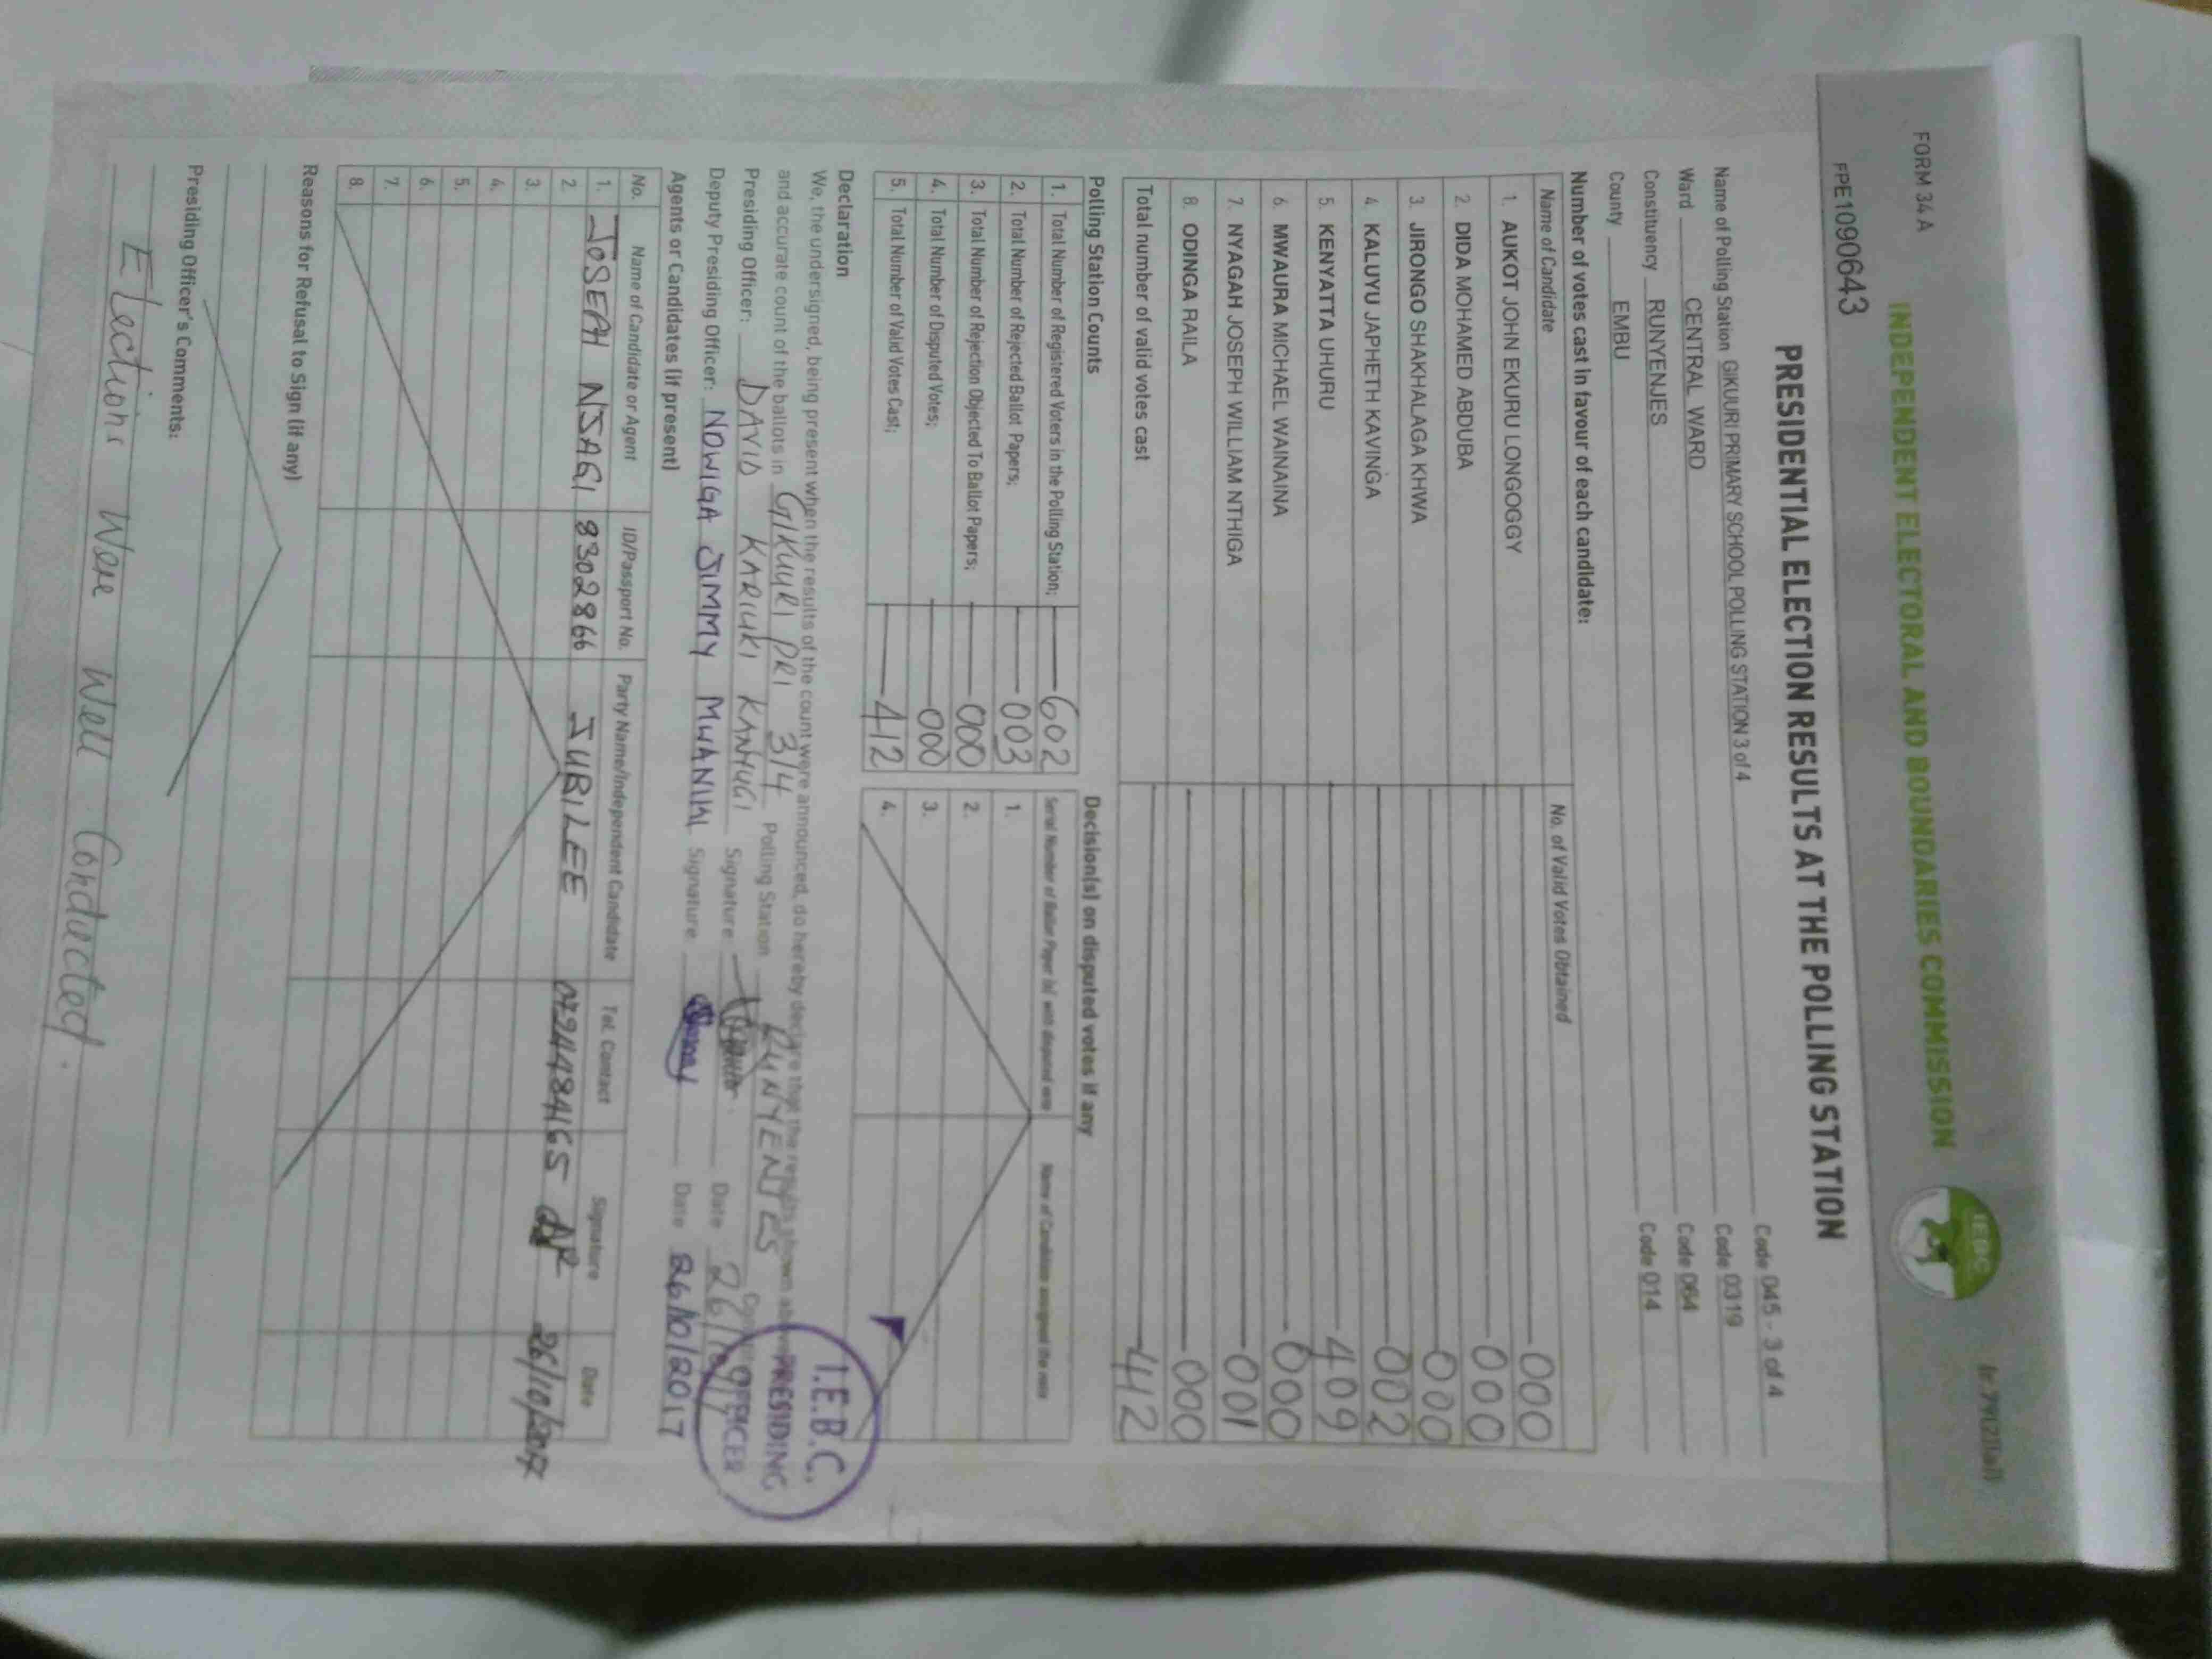 FORM 34 A
INDEPENDENT ELECTORAL AND BOUNDARIES COMMISSION
IEBC
FPE1090643
PRESIDENTIAL ELECTION RESULTS AT THE POLLING STATION
Name of Polling Station GIKUURI PRIMARY SCHOOL POLLING STATION 3 of 4 Code 045 - 3 of 4
Ward CENTRAL WARD Code 0319
Constituency RUNYENJES Code 064
County EMBU Code 014
Number of votes cast in favour of each candidate:
Name of Candidate No. of Valid Votes Obtained
1. AUKOT JOHN EKURU LONGOGGY 000
2. DIDA MOHAMED ABDUBA 000
3. JIRONGO SHAKHALAGA KHWA 000
4. KALUYU JAPHETH KAVINGA 002
5. KENYATTA UHURU 409
6. MWAURA MICHAEL WAINAINA 000
7. NYAGAH JOSEPH WILLIAM NTHIGA 001
8. ODINGA RAILA 000
Total number of valid votes cast 412
Polling Station Counts Decision(s) on disputed votes if any
1. Total Number of Registered Voters in the Polling Station; 602
2. Total Number of Rejected Ballot Papers; 003
3. Total Number of Rejection Objected To Ballot Papers; 000
4. Total Number of Disputed Votes; 000
5. Total Number of Valid Votes Cast; 412
Serial Number of Ballot Paper (s) with disputed vote Name of Candidate assigned the vote
1.
2.
3.
4.
Declaration
We, the undersigned, being present when the results of the count were announced, do hereby declare that the results shown above
and accurate count of the ballots in GIKUURI PRI 3/4 Polling Station RUNYENJES
Presiding Officer: DAVID KARIUKI KANYUGI Signature Date
Deputy Presiding Officer: NDWIGA JIMMY MWANIKI Signature Date 26/10/2017
I.E.B.C.
PRESIDING
OFFICER
Agents or Candidates (if present)
No. Name of Candidate or Agent ID/Passport No. Party Name/Independent Candidate Tel. Contact Signature Date
1. JOSEAH NJAGI 8302866 JUBILEE 0724484165 26/10/2017
2.
3.
4.
5.
6.
7.
8.
Reasons for Refusal to Sign (if any)
Presiding Officer's Comments:
Elections Were Well Conducted.